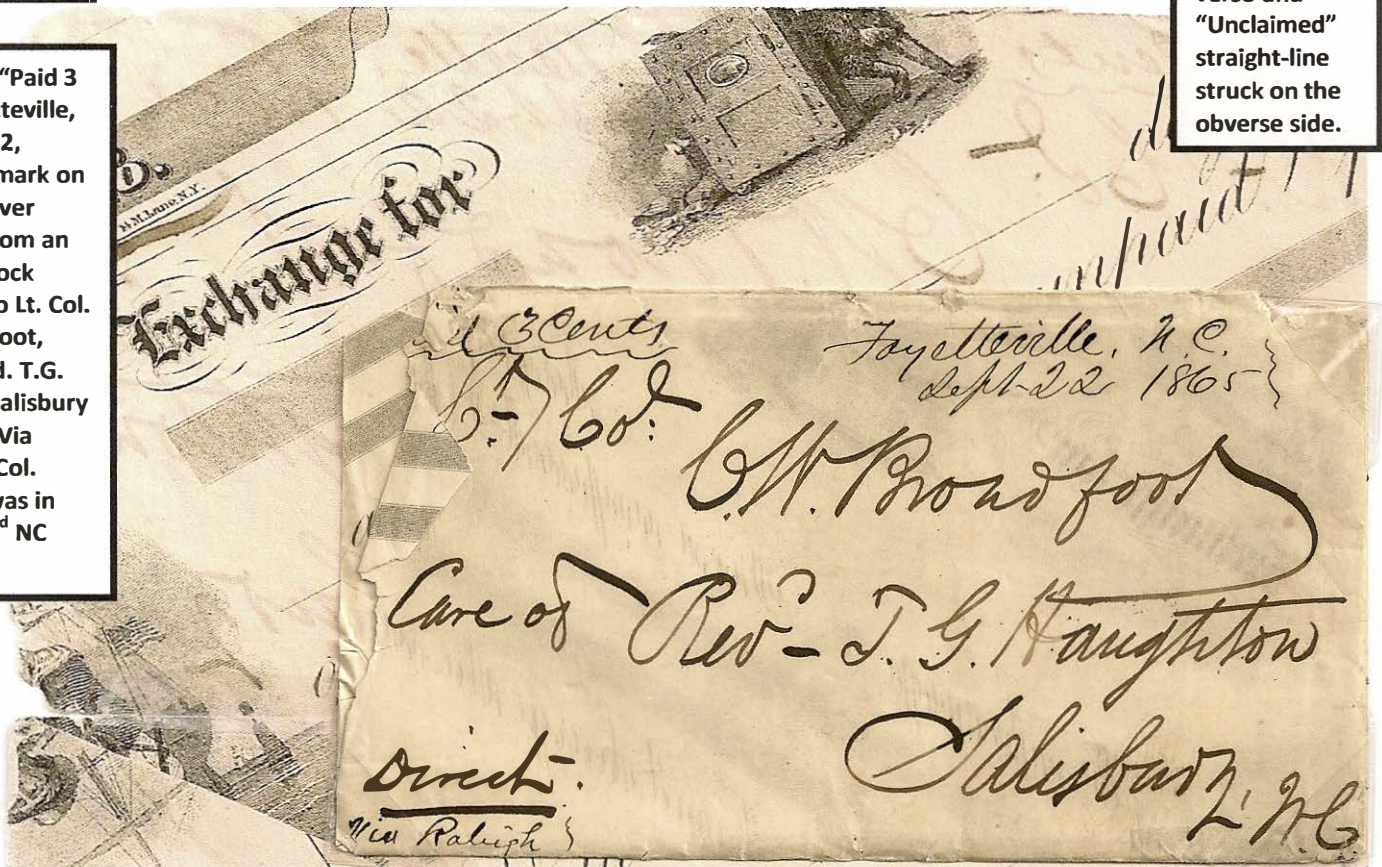 “Paid 3
tteville,
2,
mark on
ver
om an
ock
o Lt. Col.
oot,
d. T.G.
alisbury
Via
Col.
was in
rd NC
“Unclaimed”
straight-line
struck on the
obverse side.
& M. Lane, N.Y.
Exchange for
unpaid
3 Cents
Fayetteville, N.C.
Sept-22 1865
Lt Col.
C.W. Broadfoot
Care of Revd - T. G. Haughton
Salisbury, N.C.
Direct.
Via Raleigh